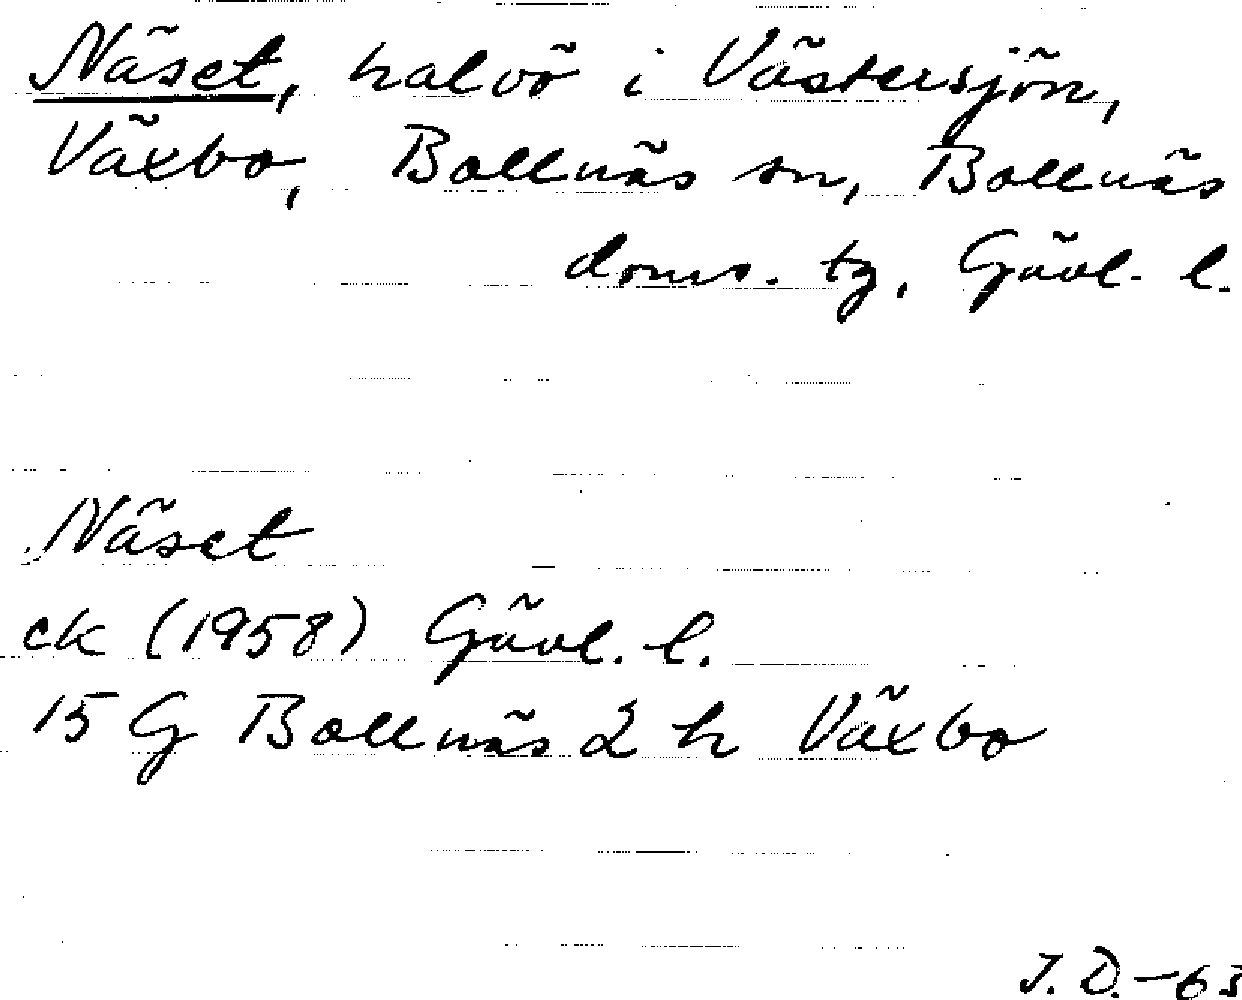 Näset, halvö i Västersjön,
Växbo, Bollnäs sn, Bollnäs
doms. tg, Gävl. l.
Näset
ck (1958) Gävl. l.
15 G Bollnäs 2 h Växbo
J. D. - 63